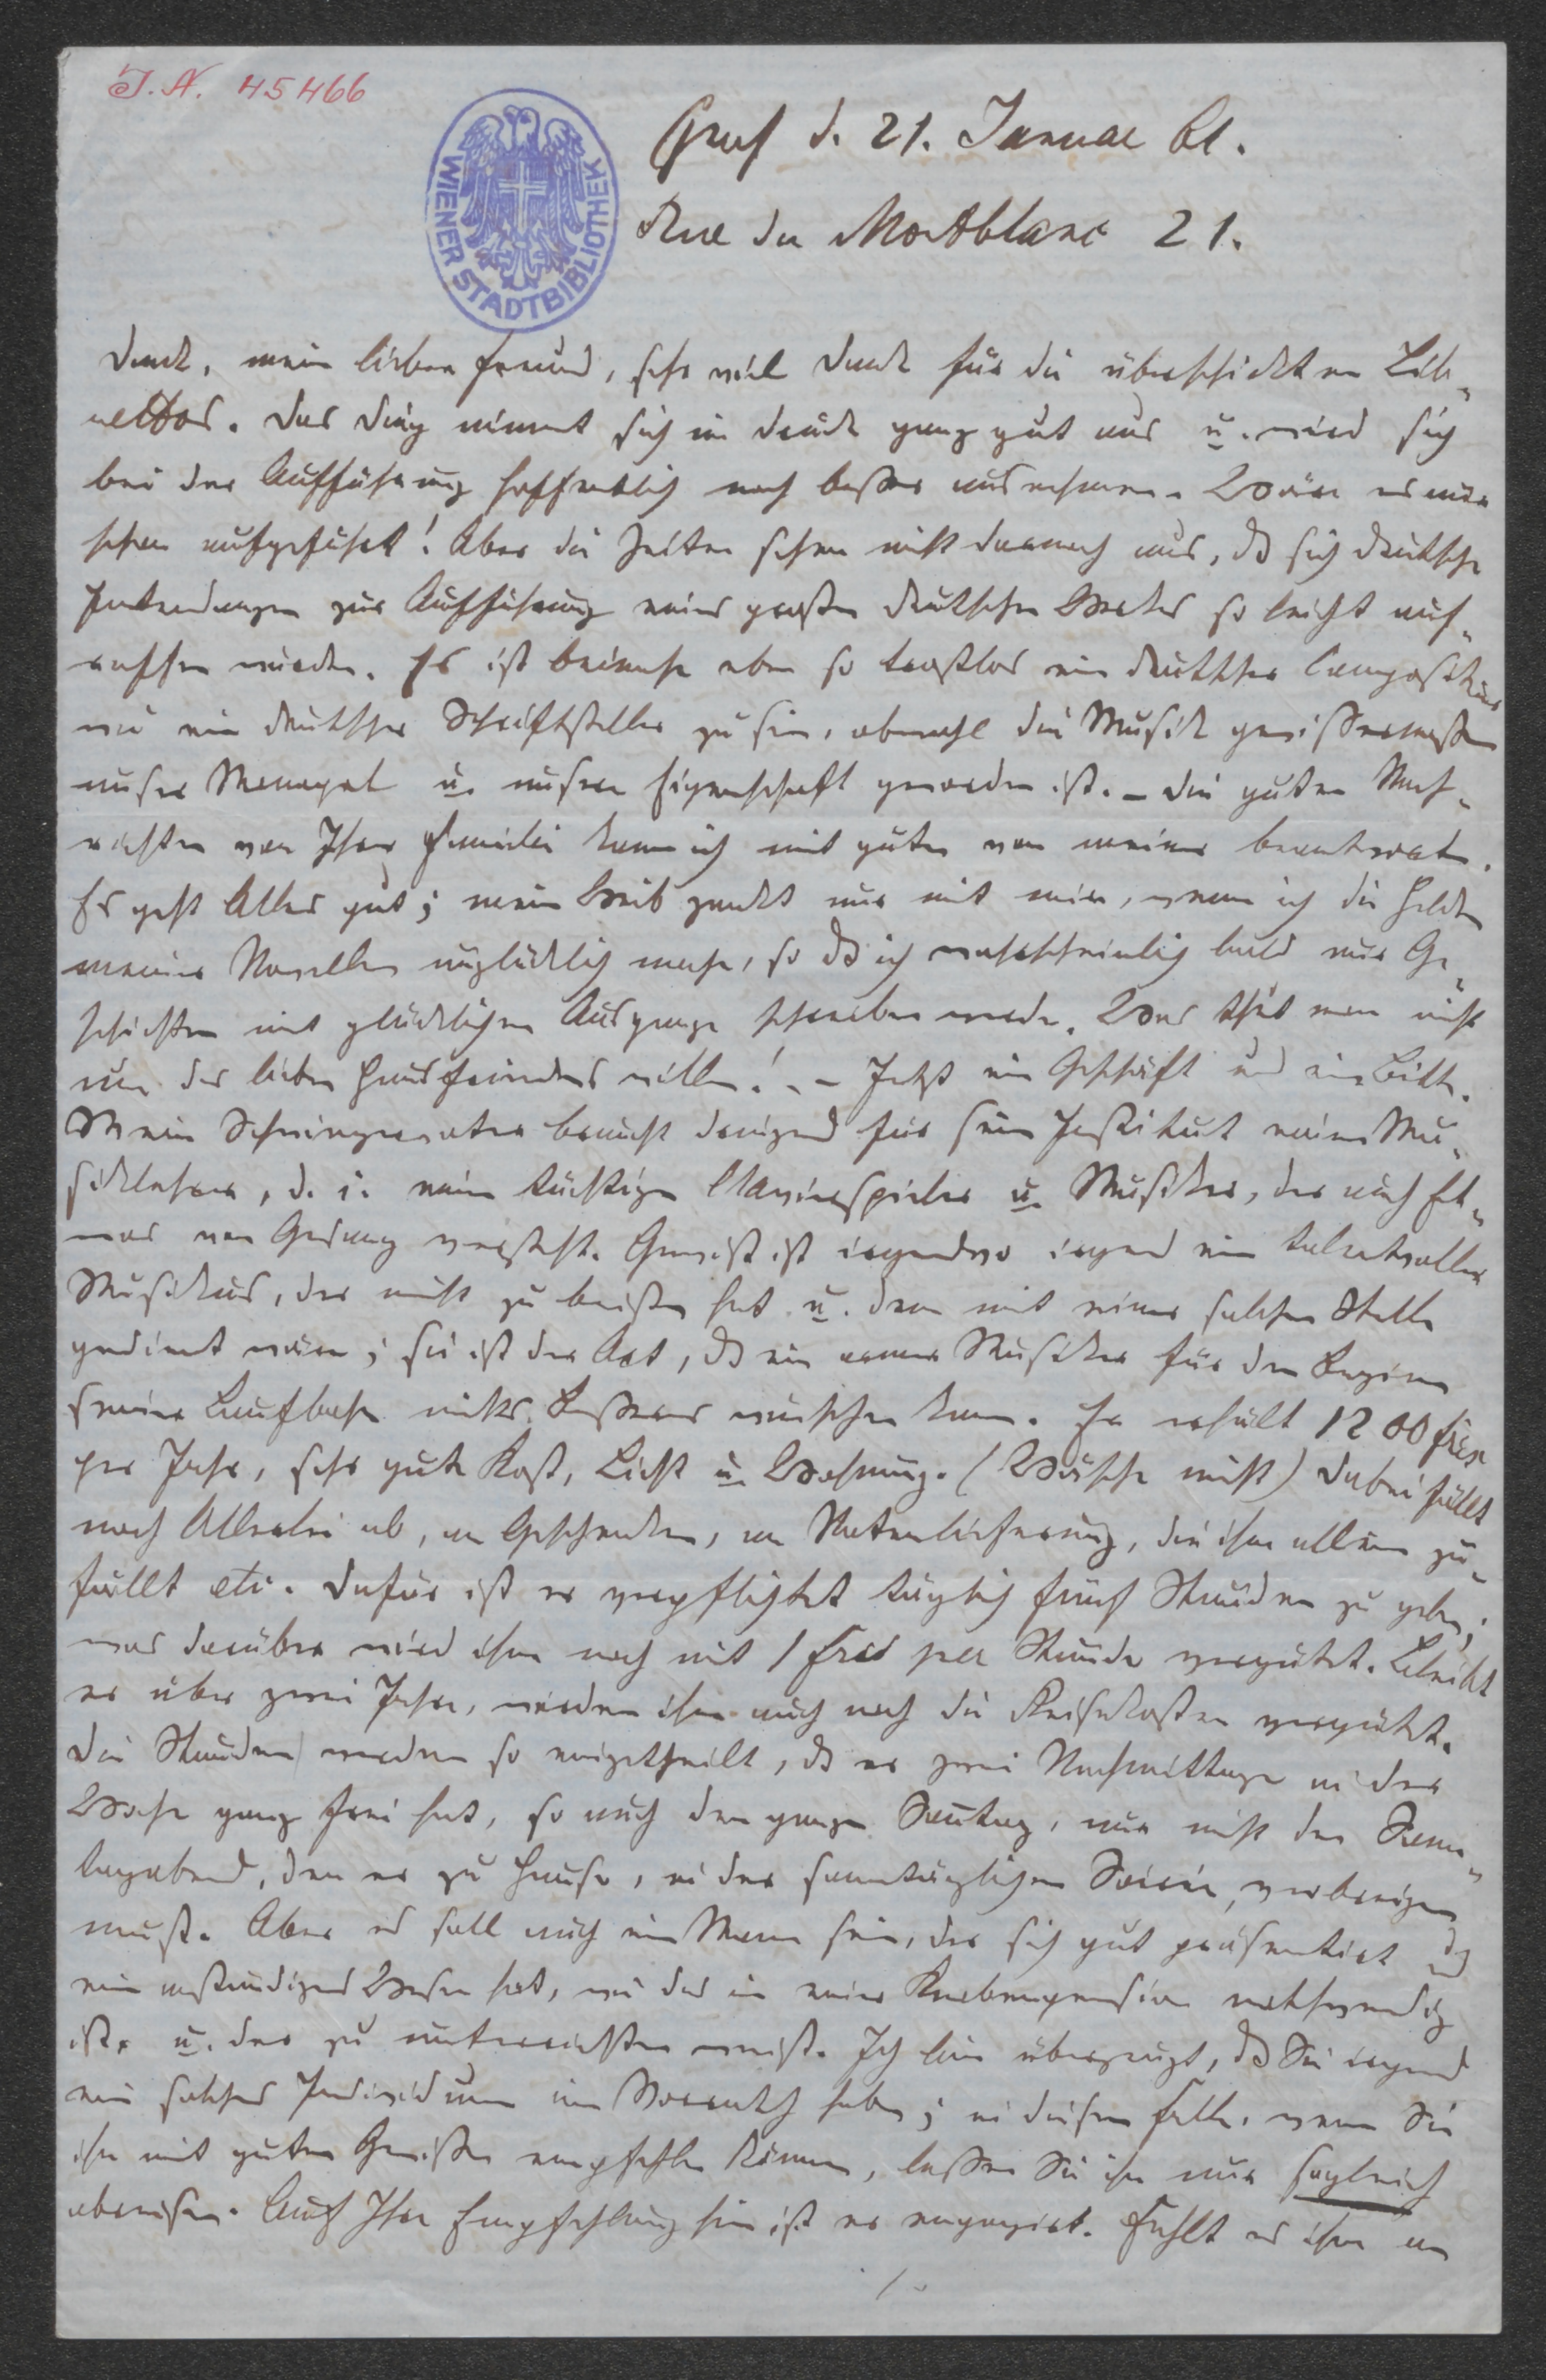 I. N. 45466
WIENER STADTBIBLIOTHEK
Genf d. 21. Januar 61.
Rue du Montblanc 21.
Dank, mein lieber Freund, sehr viel Dank für die überschickten Lib-
rettos. Das Ding nimmt sich im Druck ganz gut aus u. wird sich
bei der Aufführung hoffentlich noch besser ausnehmen. Wäre es nur
schon aufgeführt! Aber die Zeiten sehen nicht darnach aus, dß sich deutsche
Intendanzen zur Aufführung eines großen deutschen Werkes so leicht auf-
raffen würden. Es ist beinahe eben so trostlos ein deutscher Compositeur
wie ein deutscher Schriftsteller zu sein, obwohl die Musik gewissermaßen
unser Monopol u. unsere Eigenschaft geworden ist. – Die guten Nach-
richten von Ihrer Familie kann ich mit guten von meiner beantworten.
Es geht Alles gut; mein Weib zankt nur mit mir, wenn ich die Helden
meiner Novellen unglücklich mache, so dß ich wahrscheinlich bald nur Ge-
schichten mit glücklichem Ausgange schreiben werde. Was thut man nicht
um des lieben Hausfriedens willen! – – Jetzt ein Geschäft und eine Bitte.
Mein Schwiegervater braucht dringend für sein Institut einen Mu-
siklehrer, d. i. einen tüchtigen Clavierspieler u. Musiker, der auch Et-
was von Gesang versteht. Gewiß ist irgendwo irgend ein talentvoller
Musikus, der nicht zu beißen hat u. dem mit einer solchen Stelle
gedient wäre; sie ist der Art, dß ein armer Musiker für den Beginn
seiner Laufbahn nichts Besseres wünschen kann. Er erhält 1200 frcs
per Jahr, sehr gute Kost, Licht u. Wohnung. (Wäsche nicht) Dabei fällt
noch Allerlei ab, an Geschenken, an Notenlieferung, die ihm allein zu-
fällt etc. Dafür ist er verpflichtet täglich fünf Stunden zu geben;
was darüber wird ihm noch mit 1 frcs per Stunde vergütet. Bleibt
er über zwei Jahre, werden ihm auch noch die Reisekosten vergütet.
Die Stunden werden so eingetheilt, dß er zwei Nachmittage in der
Woche ganz frei hat, so auch den ganzen Sonntag, nur nicht den Sonn-
tagabend, den er zu Hause, in der sonntäglichen Soirée, verbringen
muß. Aber es soll auch ein Mann sein, der sich gut präsentirt und
ein anständiges Wesen hat, wie das in einer Knabenpension nothwendig
ist, u. der zu unterrichten weiß. Ich bin überzeugt, dß Sie irgend
ein solches Individuum im Vorrath haben; in diesem Falle, wenn Sie
ihn mit gutem Gewissen empfehlen können, lassen Sie ihn nur sogleich
abreisen. Auf Ihre Empfehlung hin ist er engagirt. Fehlt es ihm an